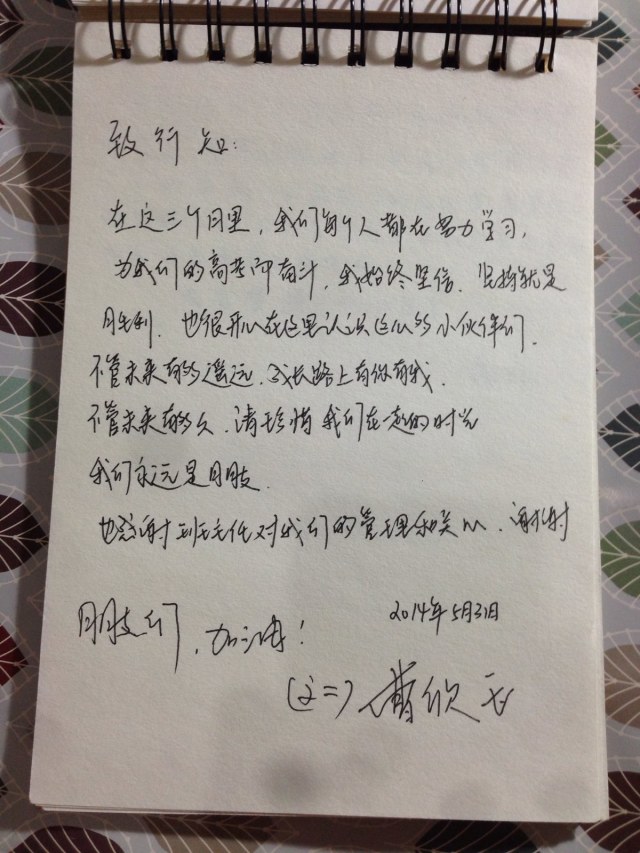 致行知：
在这三个月里，我们每个人都在努力学习，
为我们的高考而奋斗，我始终坚信，坚持就是
胜利，也很开心在这里认识这么多小伙伴们，
不管未来有多遥远，成长路上有你有我，
不管未来有多久，请珍惜我们在一起的时光
我们永远是朋友，
也感谢班主任对我们的管理和关心，谢谢
朋友们，加油！
2014年5月31日
(文二) 欣